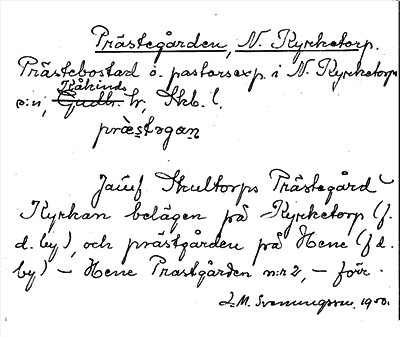 Prästegården, N. Kyrketorp.
Prästebostad o. pastorsexp. i N. Kyrketorps
Kåkinds
s:n, Gudh. hr, Skb. l.
præstgan
Jämf Skultorps Prästegård
Kyrkan belägen på Kyrketorp (f.
d. by), och prästgården på Hene (f d.
by) – Hene Prästgården n:r 2, –
J. M. Svenungsson. 1900.